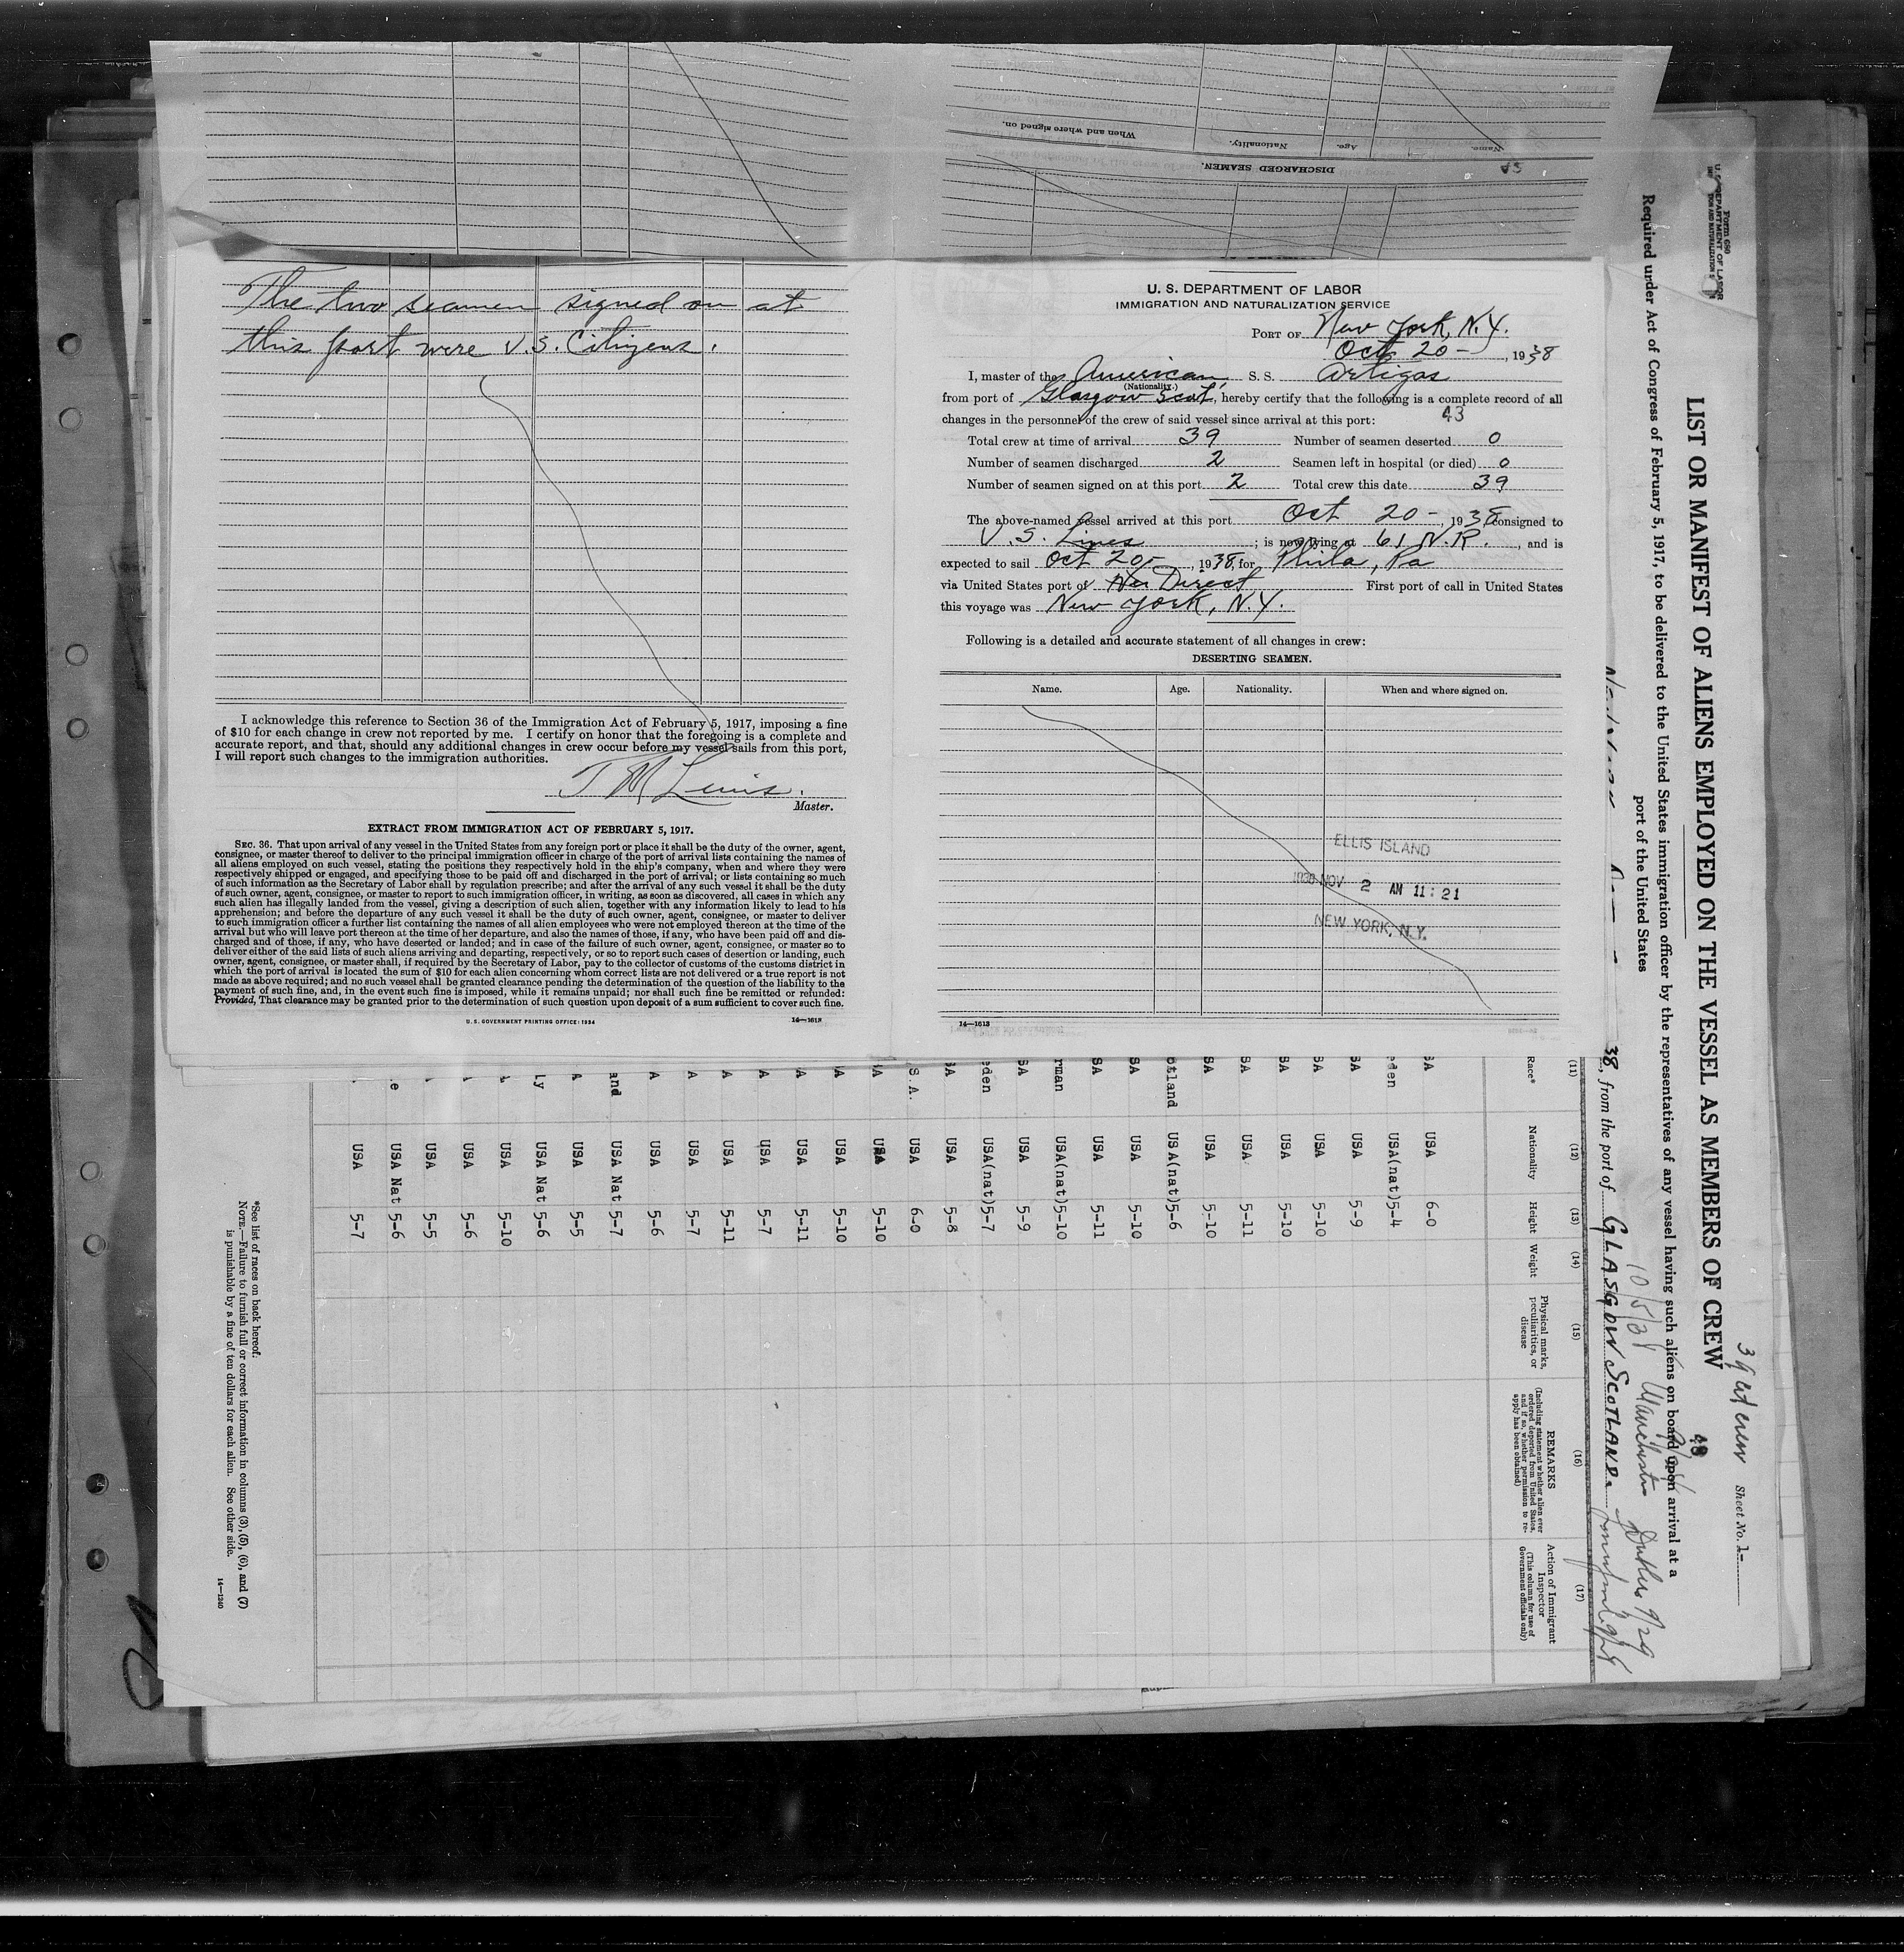 When and where signed on.
Nationality.
Age.
Name.
DISCHARGED SEAMEN.
The two seamen signed on at
this port were U.S. Citizens.
I acknowledge this reference to Section 36 of the Immigration Act of February 5, 1917, imposing a fine
of $10 for each change in crew not reported by me. I certify on honor that the foregoing is a complete and
accurate report, and that, should any additional changes in crew occur before my vessel sails from this port,
I will report such changes to the immigration authorities.
Master.
EXTRACT FROM IMMIGRATION ACT OF FEBRUARY 5, 1917.
SEC. 36. That upon arrival of any vessel in the United States from any foreign port or place it shall be the duty of the owner, agent,
consignee, or master thereof to deliver to the principal immigration officer in charge of the port of arrival lists containing the names of
all aliens employed on such vessel, stating the positions they respectively hold in the ship's company, when and where they were
respectively shipped or engaged, and specifying those to be paid off and discharged in the port of arrival; or lists containing so much
of such information as the Secretary of Labor shall by regulation prescribe; and after the arrival of any such vessel it shall be the duty
of such owner, agent, consignee, or master to report to such immigration officer, in writing, as soon as discovered, all cases in which any
such alien has illegally landed from the vessel, giving a description of such alien, together with any information likely to lead to his
apprehension; and before the departure of any such vessel it shall be the duty of such owner, agent, consignee, or master to deliver
to such immigration officer a further list containing the names of all alien employees who were not employed thereon at the time of the
arrival but who will leave port thereon at the time of her departure, and also the names of those, if any, who have been paid off and dis-
charged and of those, if any, who have deserted or landed; and in case of the failure of such owner, agent, consignee, or master so to
deliver either of the said lists of such aliens arriving and departing, respectively, or so to report such cases of desertion or landing, such
owner, agent, consignee, or master shall, if required by the Secretary of Labor, pay to the collector of customs of the customs district in
which the port of arrival is located the sum of $10 for each alien concerning whom correct lists are not delivered or a true report is not
made as above required; and no such vessel shall be granted clearance pending the determination of the question of the liability to the
payment of such fine, and, in the event such fine is imposed, while it remains unpaid; nor shall such fine be remitted or refunded:
Provided, That clearance may be granted prior to the determination of such question upon deposit of a sum sufficient to cover such fine.
U. S. GOVERNMENT PRINTING OFFICE: 1934 14—1613
U. S. DEPARTMENT OF LABOR
IMMIGRATION AND NATURALIZATION SERVICE
PORT OF New York, N.Y.
Oct 20 - , 1938
I, master of the American S. S. Artigas
(Nationality.)
from port of Glasgow Scot., hereby certify that the following is a complete record of all
changes in the personnel of the crew of said vessel since arrival at this port: 43
Total crew at time of arrival 39 Number of seamen deserted 0
Number of seamen discharged 2 Seamen left in hospital (or died) 0
Number of seamen signed on at this port 2 Total crew this date 39
The above-named vessel arrived at this port Oct 20 - , 1938, consigned to
U.S. Lines ; is now lying at 61 N.R. , and is
expected to sail Oct 20 - , 1938, for Phila, Pa
via United States port of Direct First port of call in United States
this voyage was New York, N.Y.
Following is a detailed and accurate statement of all changes in crew:
DESERTING SEAMEN.
Name. Age. Nationality. When and where signed on.
ELLIS ISLAND
1938 NOV 2 AM 11:21
NEW YORK, N.Y.
14—1613
Form 680
U. S. DEPARTMENT OF LABOR
Sheet No. 1-
LIST OR MANIFEST OF ALIENS EMPLOYED ON THE VESSEL AS MEMBERS OF CREW
Required under Act of Congress of February 5, 1917, to be delivered to the United States immigration officer by the representatives of any vessel having such aliens on board upon arrival at a
port of the United States
38, from the port of GLASGOW SCOTLAND.
10/5/38 Manchester Dublin 9/29
(11) (12) (13) (14) (15) (16) (17)
Race* Nationality Height Weight Physical marks, peculiarities, or disease REMARKS (Including statement whether alien ever ordered deported from United States, and if so, whether permission to re-apply has been obtained) Action of Immigrant Inspector (This column for use of Government officials only)
SA USA 6-0
eden USA(nat)5-4
SA USA 5-9
SA USA 5-10
SA USA 5-10
SA USA 5-11
SA USA 5-10
otland USA(nat)5-6
SA USA 5-10
SA USA 5-11
rman USA(nat)5-10
SA USA 5-9
eden USA(nat)5-7
SA USA 5-8
S.A. USA 6-0
A USA 5-10
A USA 5-10
A USA 5-11
A USA 5-7
A USA 5-11
A USA 5-7
A USA 5-6
and USA Nat 5-7
A USA 5-5
ly USA Nat 5-6
USA 5-10
USA 5-6
USA 5-5
e USA Nat 5-6
USA 5-7
*See list of races on back hereof.
NOTE.—Failure to furnish full or correct information in columns (3), (5), (6), and (7)
is punishable by a fine of ten dollars for each alien. See other side.
14—1240